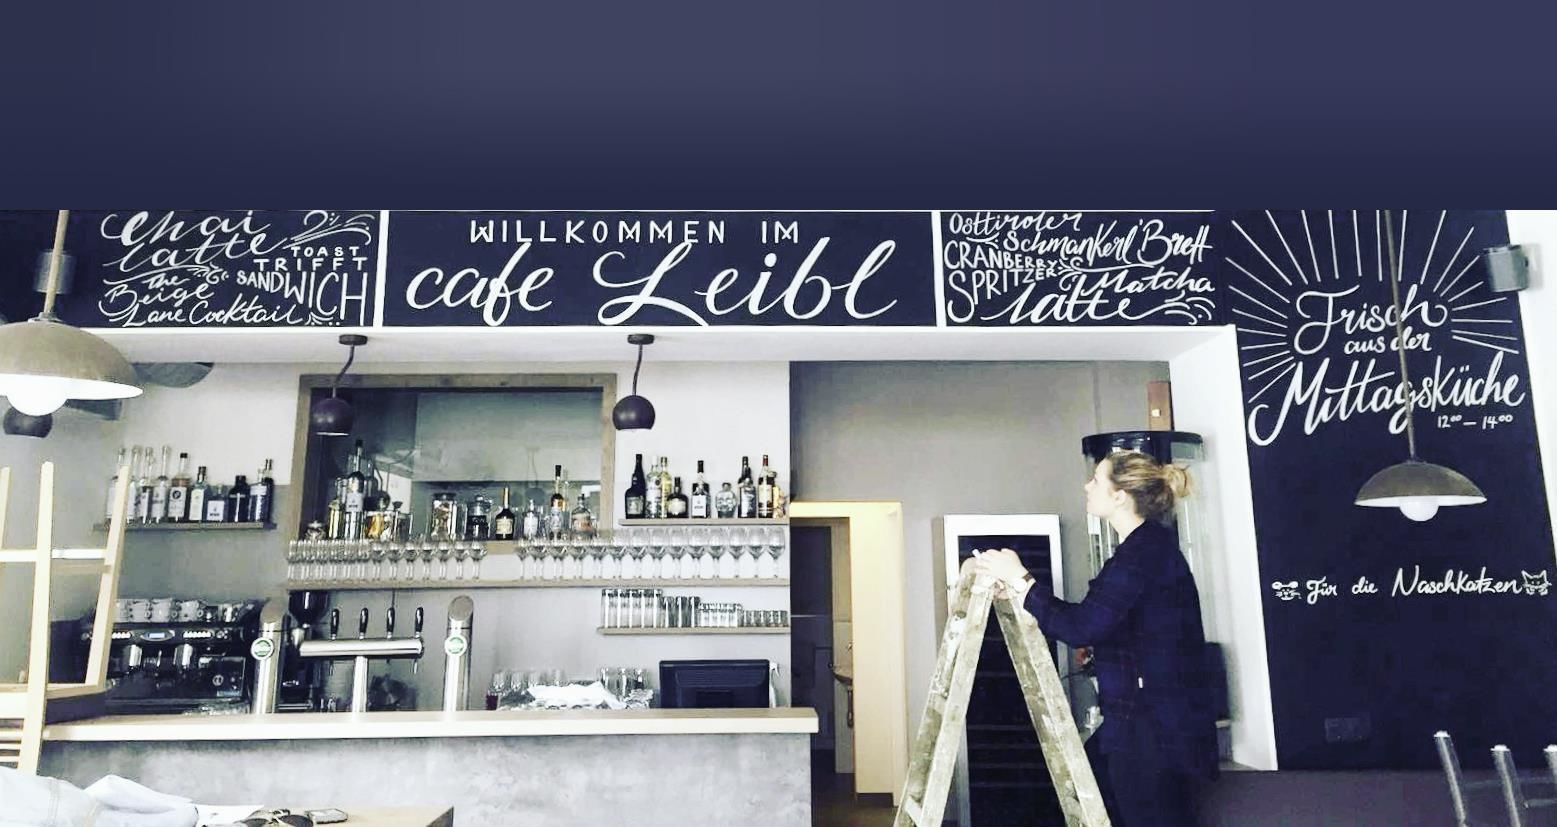 Chai
latte
TOAST
TRIFFT
SANDWICH
The
Beige
Lane Cocktail
WILLKOMMEN IM
cafe Leibl
Osttiroler
Schmankerl Brett
CRANBERRY
SPRITZER
Matcha
latte
Frisch
aus der
Mittagsküche
12⁰⁰ – 14⁰⁰
Für die Naschkatzen